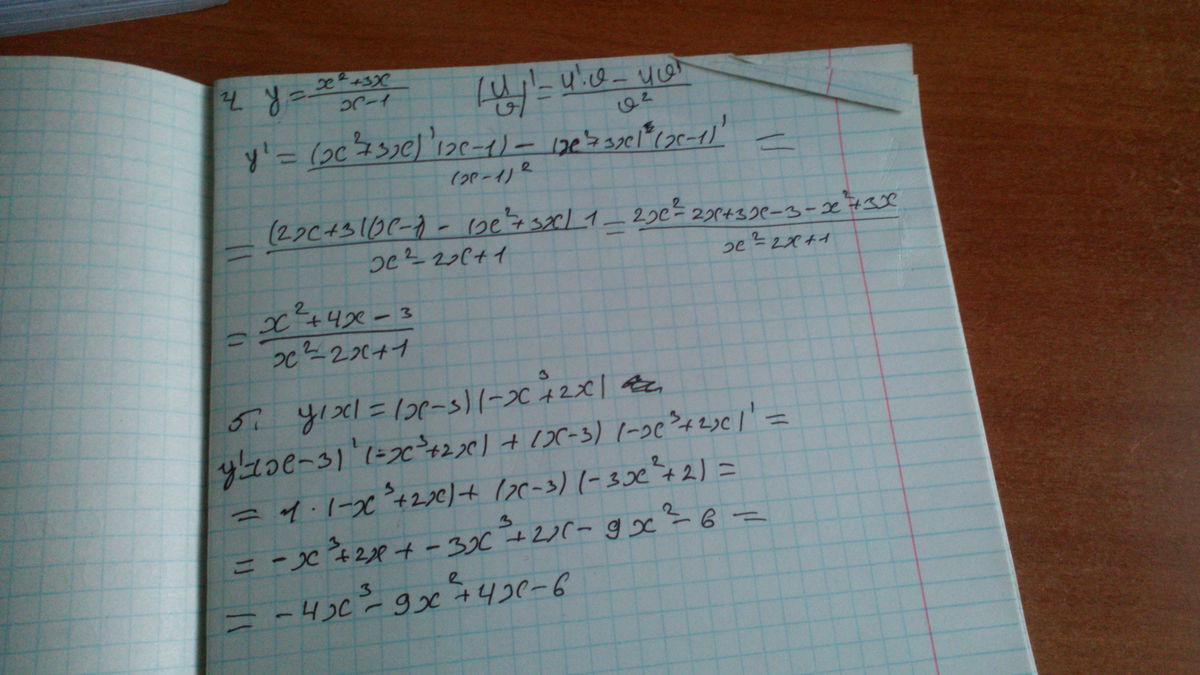 4. y = (x²+3x)/(x-1)   (u/v)' = (u'·v - uv')/v²
y' = ((x²+3x)'(x-1) - (x²+3x)·(x-1)')/(x-1)² =
= ((2x+3)(x-1) - (x²+3x)·1)/(x²-2x+1) = (2x²-2x+3x-3-x²+3x)/(x²-2x+1)
= (x²+4x-3)/(x²-2x+1)
5. y(x) = (x-3)(-x³+2x)
y'=(x-3)'(-x³+2x) + (x-3)(-x³+2x)' =
= 1·(-x³+2x) + (x-3)(-3x²+2) =
= -x³+2x + -3x³+2x - 9x² - 6 =
= -4x³ - 9x² + 4x - 6